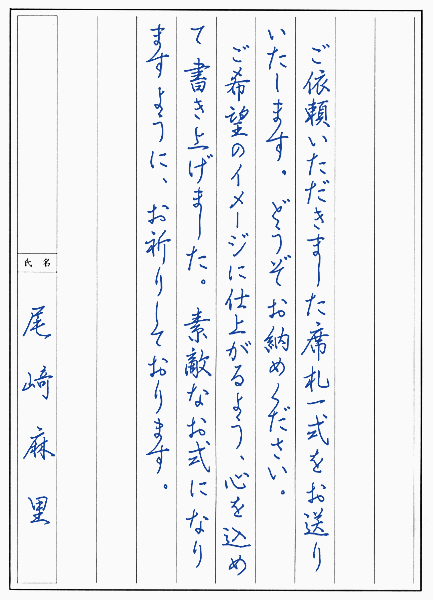 ご依頼いただきました席札一式をお送り
いたします。どうぞお納めください。
ご希望のイメージに仕上がるよう、心を込め
て書き上げました。素敵なお式になり
ますように、お祈りしております。
氏名
尾﨑麻里